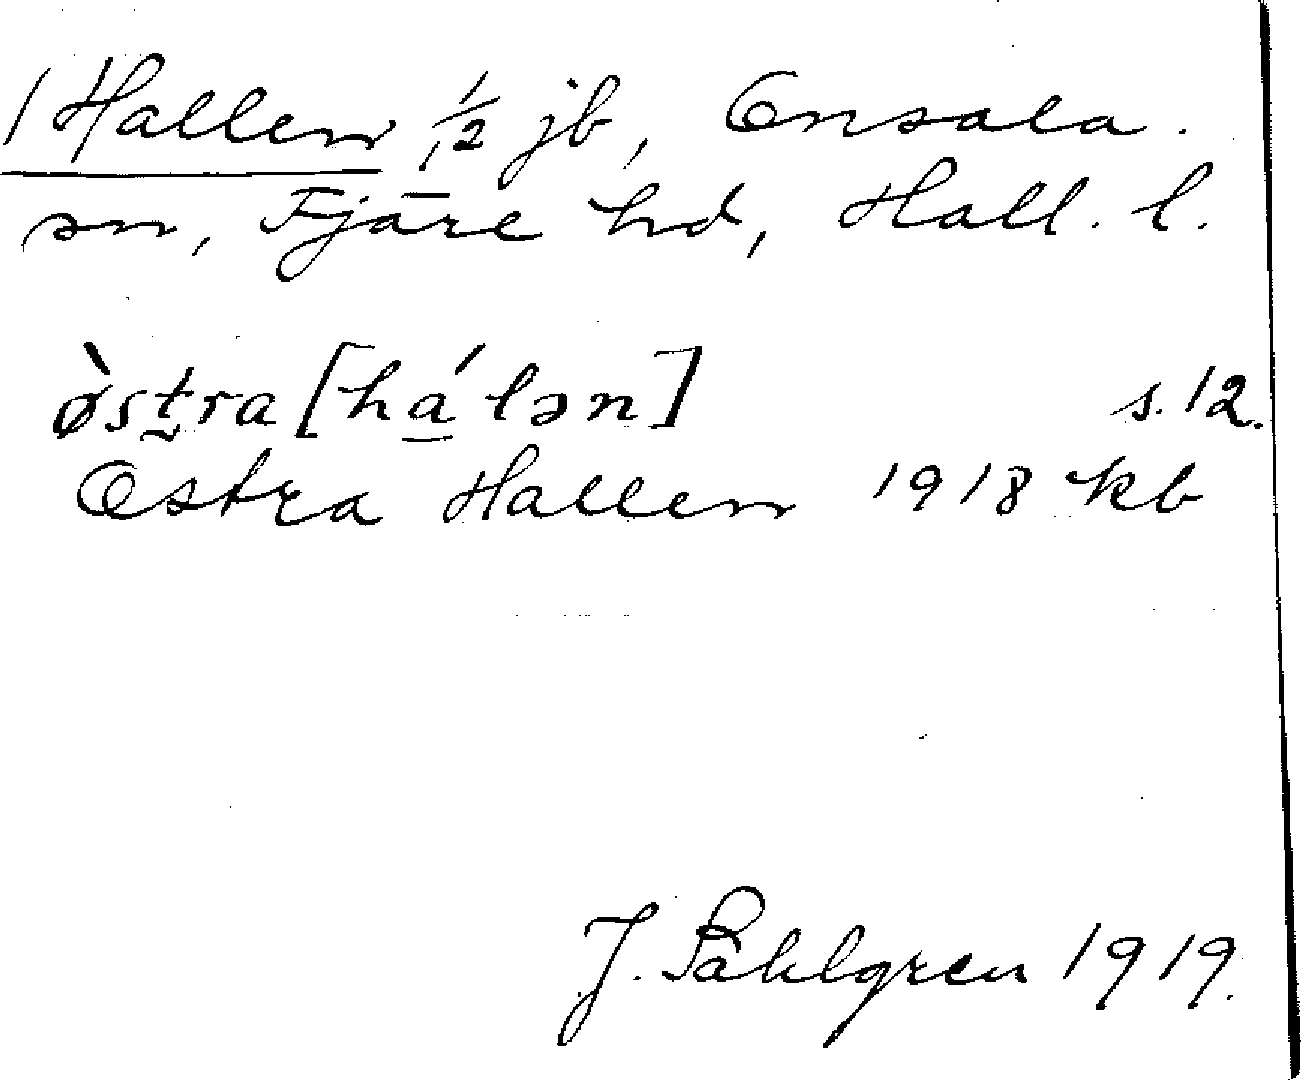 1 Hallen 1/2 jb, Onsala.
sn, Fjäre hd, Hall. l.
ø̀stra [há̱lən] s. 12.
Östra Hallen 1918 kb
J. Sahlgren 1919.